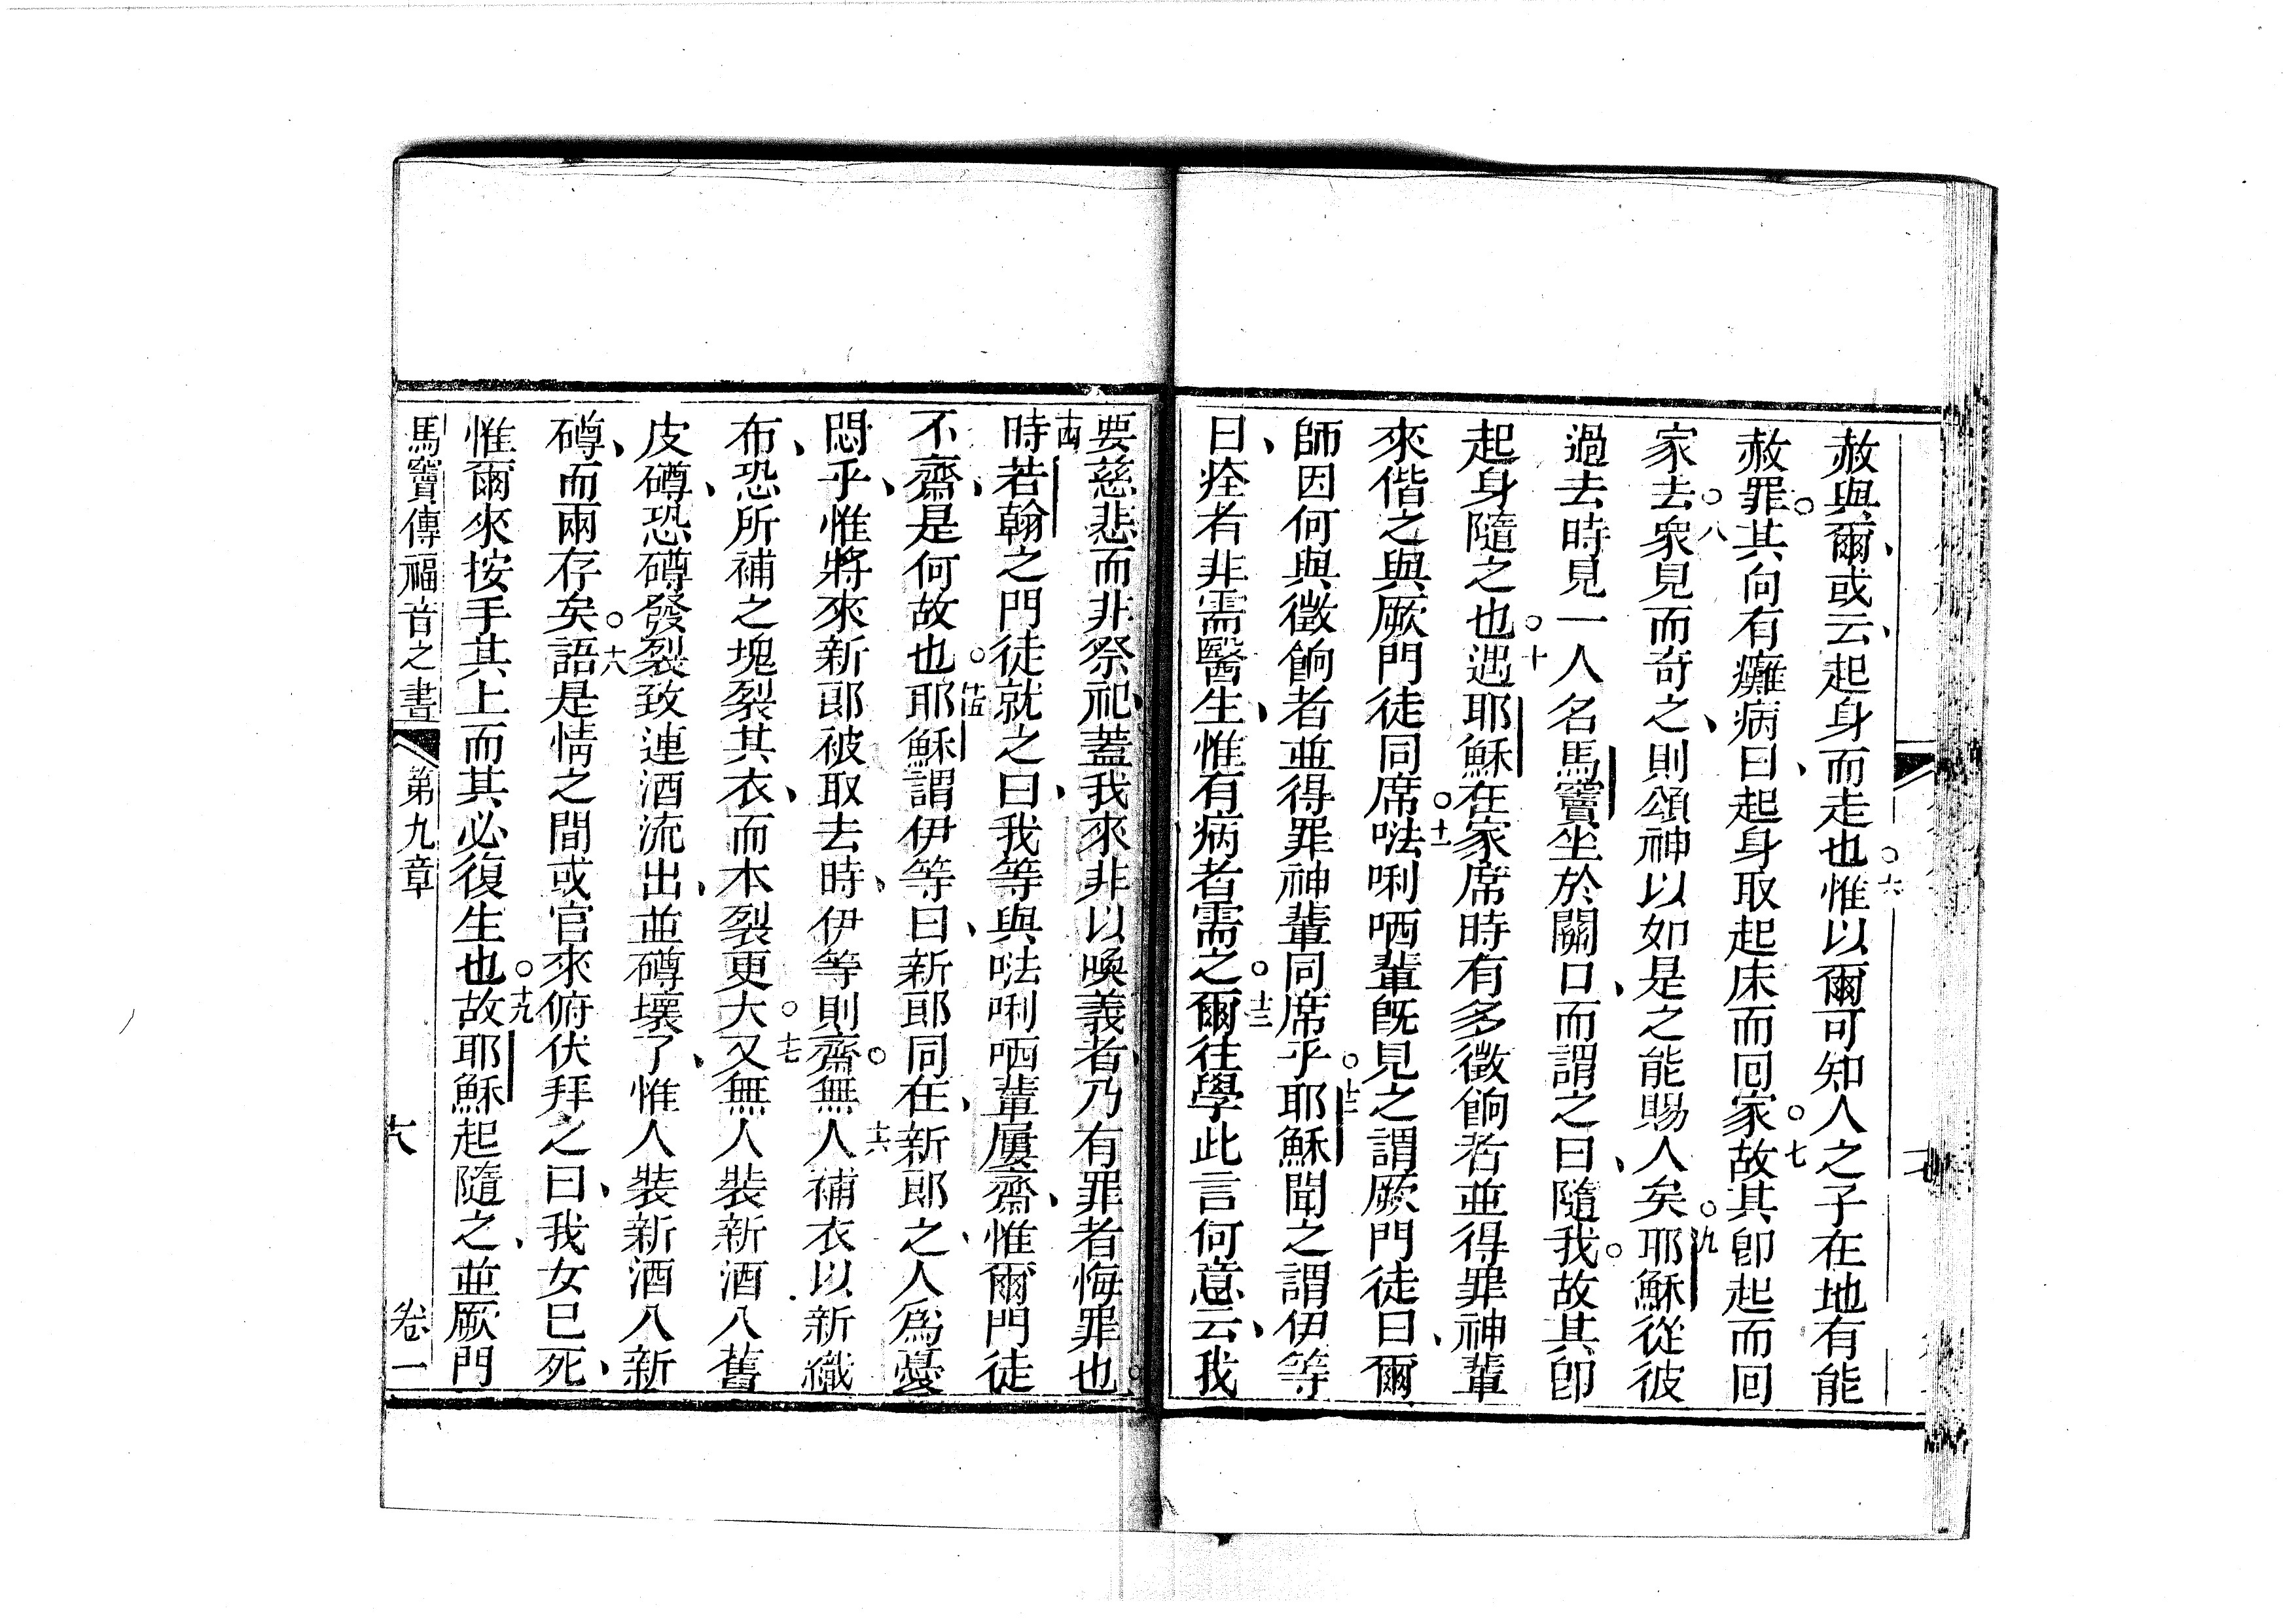 赦與爾、或云、起身而走也○六惟以爾可知人之子在地有能
赦罪○其向有癱病曰、起身取起床而回家○七故其卽起而回
家去○八衆見而奇之、則頌神以如是之能賜人矣○九耶穌從彼
過去時見一人名馬竇坐於關口、而謂之曰、隨我○故其卽
起身隨之也○十遇耶穌在家席時有多徵餉者並得罪神輩
來偕之與厥門徒同席○十一㗓唎哂輩旣見之謂厥門徒曰、爾
師因何與徵餉者並得罪神輩同席乎○十二耶穌聞之謂伊等
曰、痊者非需醫生、惟有病者需之○十三爾往學此言何意云、我
要慈悲而非祭祀、蓋我來非以喚義者、乃有罪者悔罪也○
十四時若翰之門徒就之曰、我等與㗓唎哂輩屢齋、惟爾門徒
不齋、是何故也○十五耶穌謂伊等曰、新郎同在、新郎之人爲憂
悶乎、惟將來新郎被取去時、伊等則齋○十六無人補衣以新織
布、恐所補之塊裂其衣、而本裂更大○十七又無人裝新酒入舊
皮罇、恐罇發裂致連酒流出、並罇壞了、惟人裝新酒入新
罇、而兩存矣○十八語是情之間或官來俯伏拜之曰、我女已死、
惟爾來按手其上而其必復生也○十九故耶穌起隨之、並厥門
馬竇傳福音之書 第九章 十八 卷一